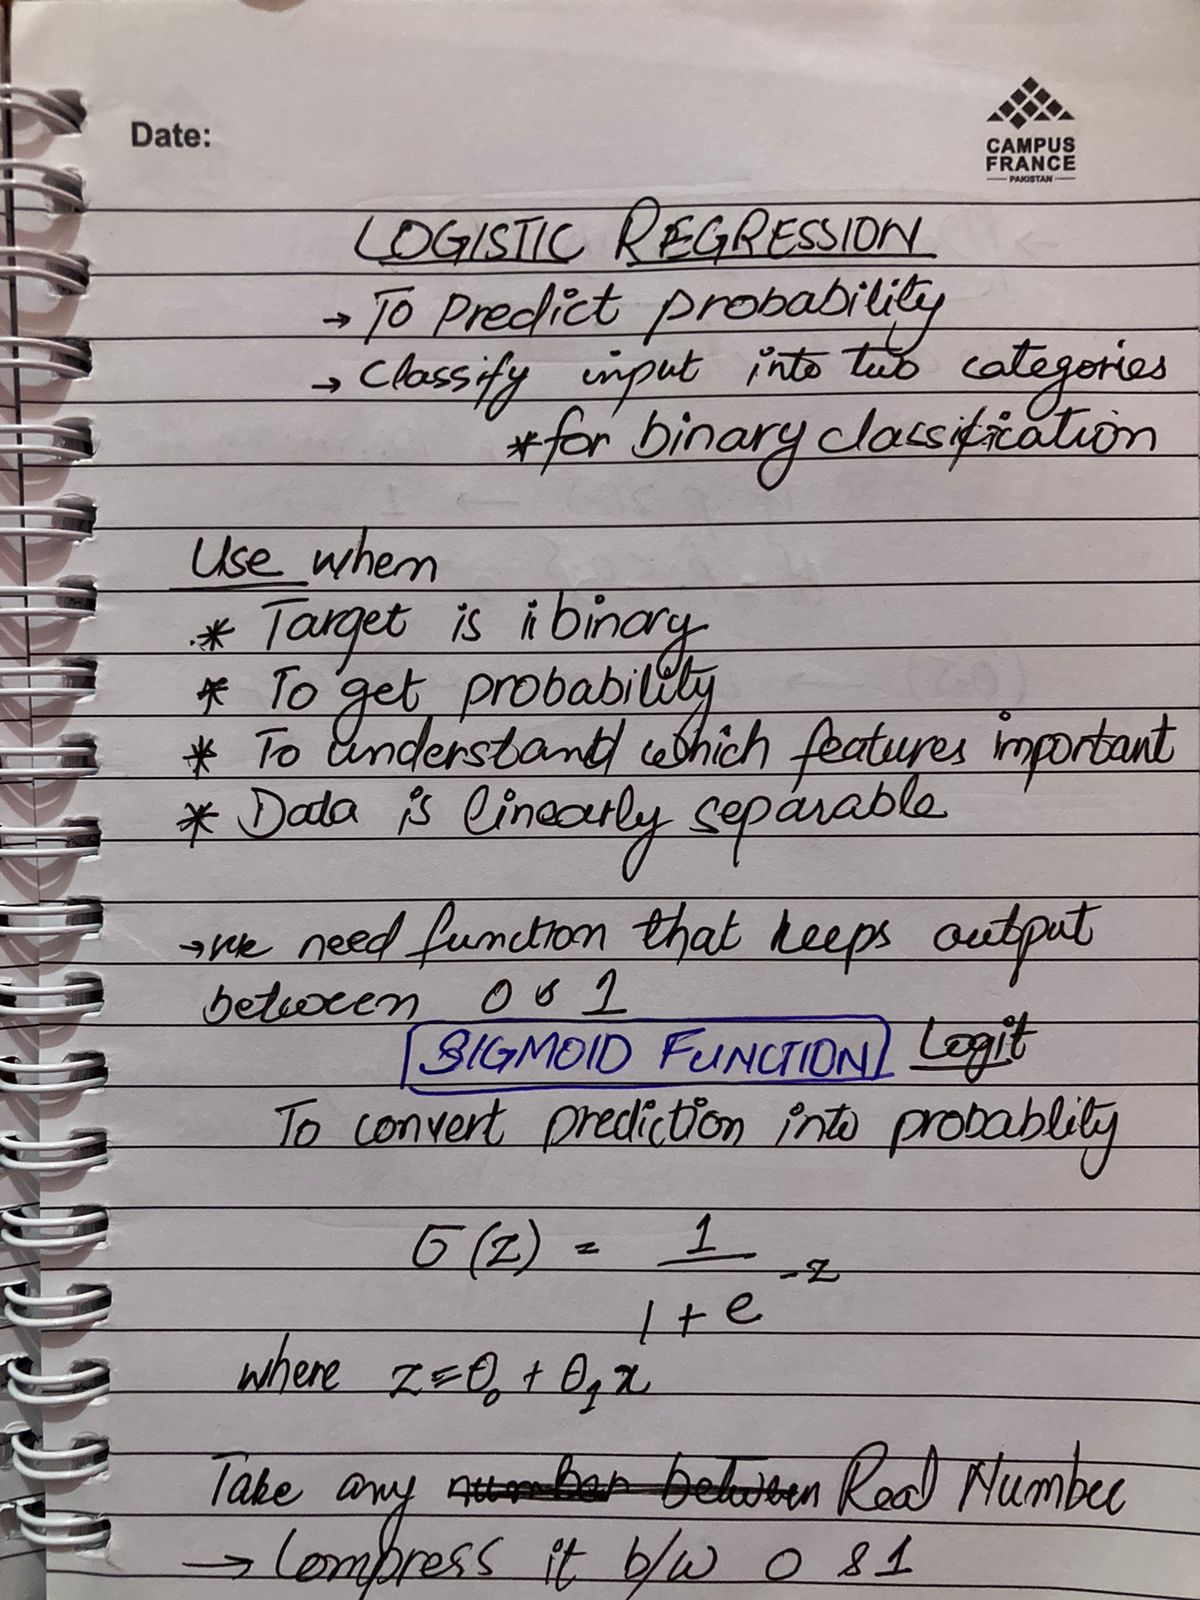 Date:
CAMPUS
FRANCE
PAKISTAN
LOGISTIC REGRESSION
→ To Predict probability
→ Classify input into two categories
*for binary classification
Use when
* Target is binary
* To get probability
* To understand which features important
* Data is linearly separable
→ we need function that keeps output
between 0 & 1
SIGMOID FUNCTION Logit
To convert prediction into probablity
σ(z) = 1 / 1 + e^-z
where z = θ₀ + θ₁x
Take any number between Real Number
→ Compress it b/w 0 & 1